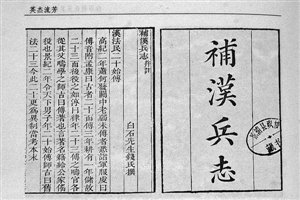 英杰流芳
補漢兵志
補漢兵志并序
白石先生錢氏撰
漢法民二十始傅
高紀二年蕭何發關中老弱未傅者悉詣軍服虔曰
傅音附孟康曰古者二十而傅三年耕有一年儲故
二十三而後役之如淳曰律年二十三傅之疇官各
從其父疇學之師古曰傅著也言著名籍給公家徭
役也景紀二年令天下男子年二十始傅師古曰舊
法二十三今此二十更爲異制